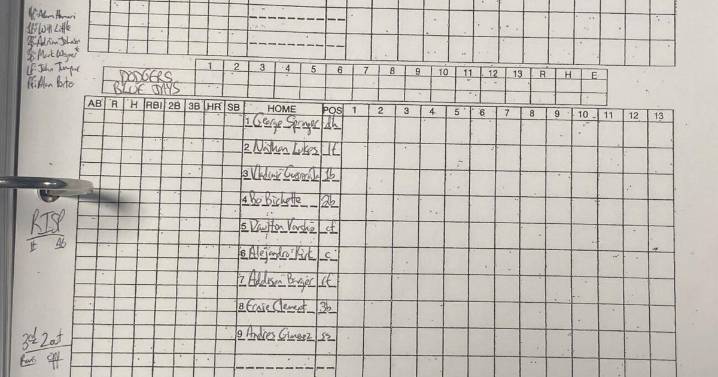 HP: Adam Hamari
1B: Will Little
2B: Adrian Johnson
3B: Mark Wegner
LF: John Tumpane
RF: Alan Porter
1 2 3 4 5 6 7 8 9 10 11 12 13 R H E
DODGERS
BLUE JAYS
AB R H RBI 2B 3B HR SB HOME POS 1 2 3 4 5 6 7 8 9 10 11 12 13
1 George Springer dh
2 Nathan Lukes lf
3 Vladimir Guerrero 1b
4 Bo Bichette 2b
5 Daulton Varsho cf
6 Alejandro Kirk c
7 Addison Barger rf
8 Ernie Clement 3b
9 Andres Gimenez ss
RISP
H AB
3rd 2out
Runs off